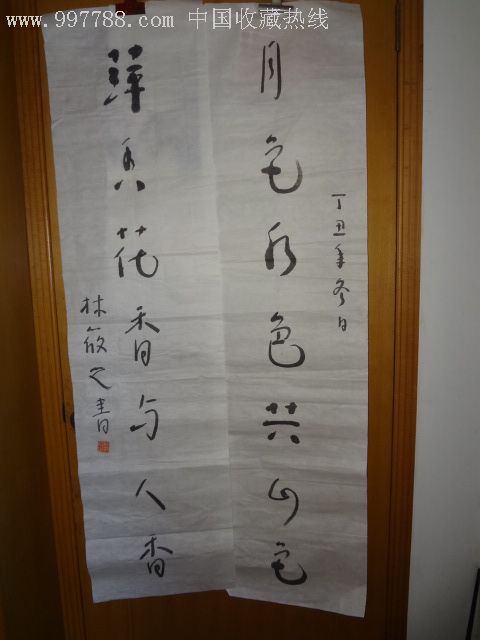 www.997788.com 中国收藏热线
丁丑年冬日
月色水色共山色
香花香与人香
林筱之書